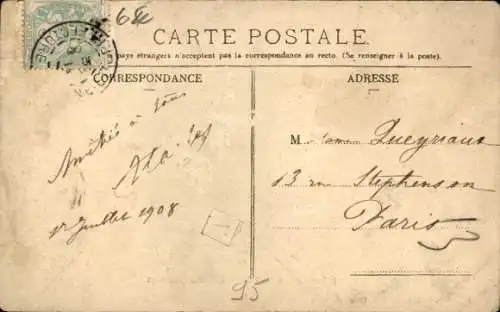 CARTE POSTALE
pays étrangers n'acceptent pas la correspondance au recto. (Se renseigner à la poste).
CORRESPONDANCE
Amitiés à tous
12 Juillet 1908
95
ADRESSE
Madame Queyriaux
13 rue Stephenson
Paris